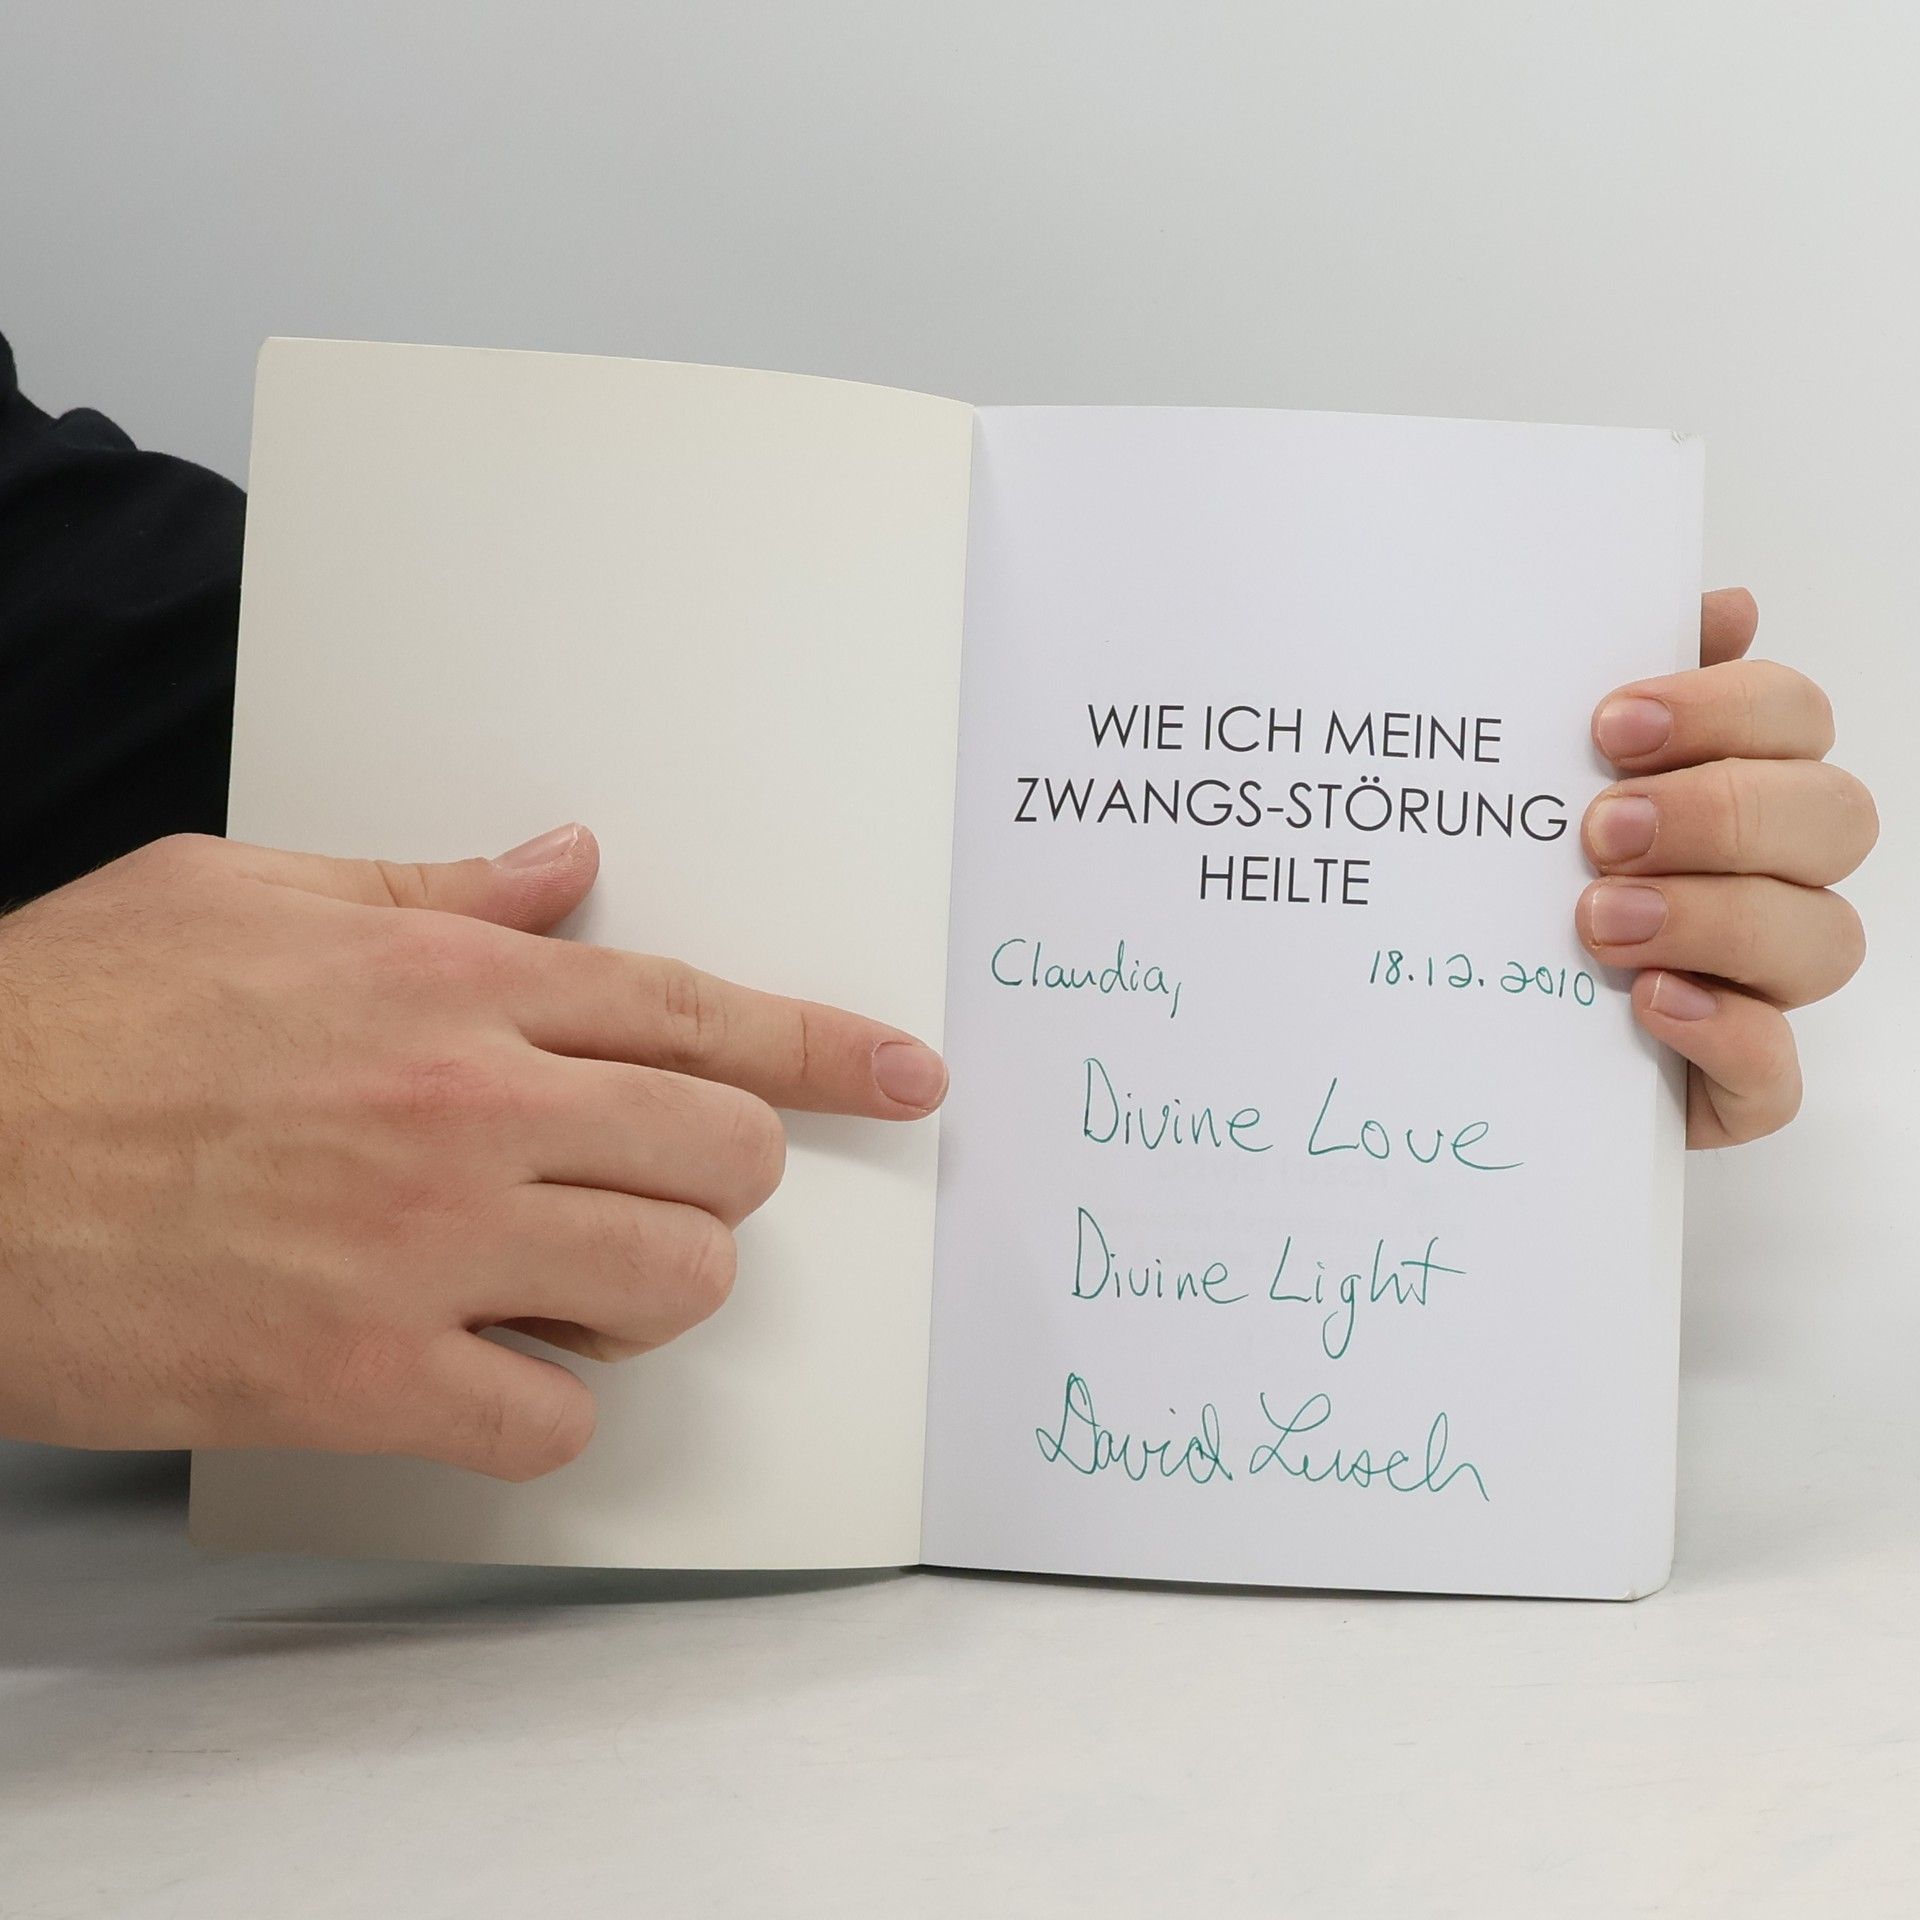 WIE ICH MEINE
ZWANGS-STÖRUNG
HEILTE
Claudia, 18.12.2010
Divine Love
Divine Light
David Lusch